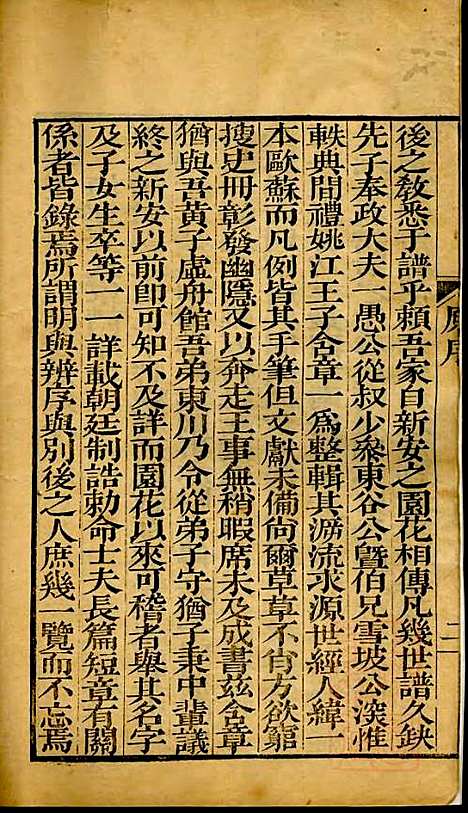 後之教悉于譜乎頼吾家自新安之園花相傳凡幾世譜久缺
先子奉政大夫一愚公從叔少參東谷公曁伯兄雪坡公深惟
軼典間禮姚江王子含章一爲整輯其㴑流求源世經人緯一
本歐蘇而凡例皆其手筆但文獻未備尙爾草草不肖方欲䆿
搜史冊彰發幽隱又以奔走王事無稍暇席未及成書茲含章
猶與吾黃子虛舟館吾弟東川乃令從弟子守猶子秉中輩議
終之新安以前即可知不及詳而園花以來可稽者舉其名字
及子女生卒等一一詳載朝廷制誥勅命士夫長篇短章有關
係者皆錄焉所謂明與辨序與別後之人庶幾一覽而不忘焉
序
二